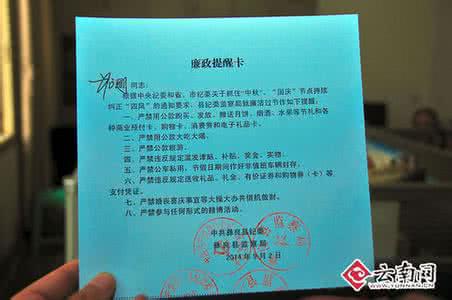 廉政提醒卡
同志：
根据中央纪委和省、市纪委关于抓住“中秋”、“国庆”节点持续
纠正“四风”的通知要求，县纪委监察局就廉洁过节作如下提醒：
一、严禁用公款购买、发放、赠送月饼、烟酒、水果等节礼和各
种商业预付卡、购物卡、消费券和电子礼品卡。
二、严禁用公款大吃大喝。
三、严禁公款旅游。
四、严禁违反规定滥发津贴、补贴、奖金、实物。
五、严禁公车私用，节假日期间作好非值班车辆封存。
六、严禁违反规定送收礼品、礼金、有价证券和购物券（卡）等
支付凭证。
七、严禁婚丧喜庆事宜等大操大办共借机敛财。
八、严禁参与任何形式的赌博活动。
中共彝良县纪委
彝良县监察局
2014年9月2日
云南网
WWW.YUNNAN.CN